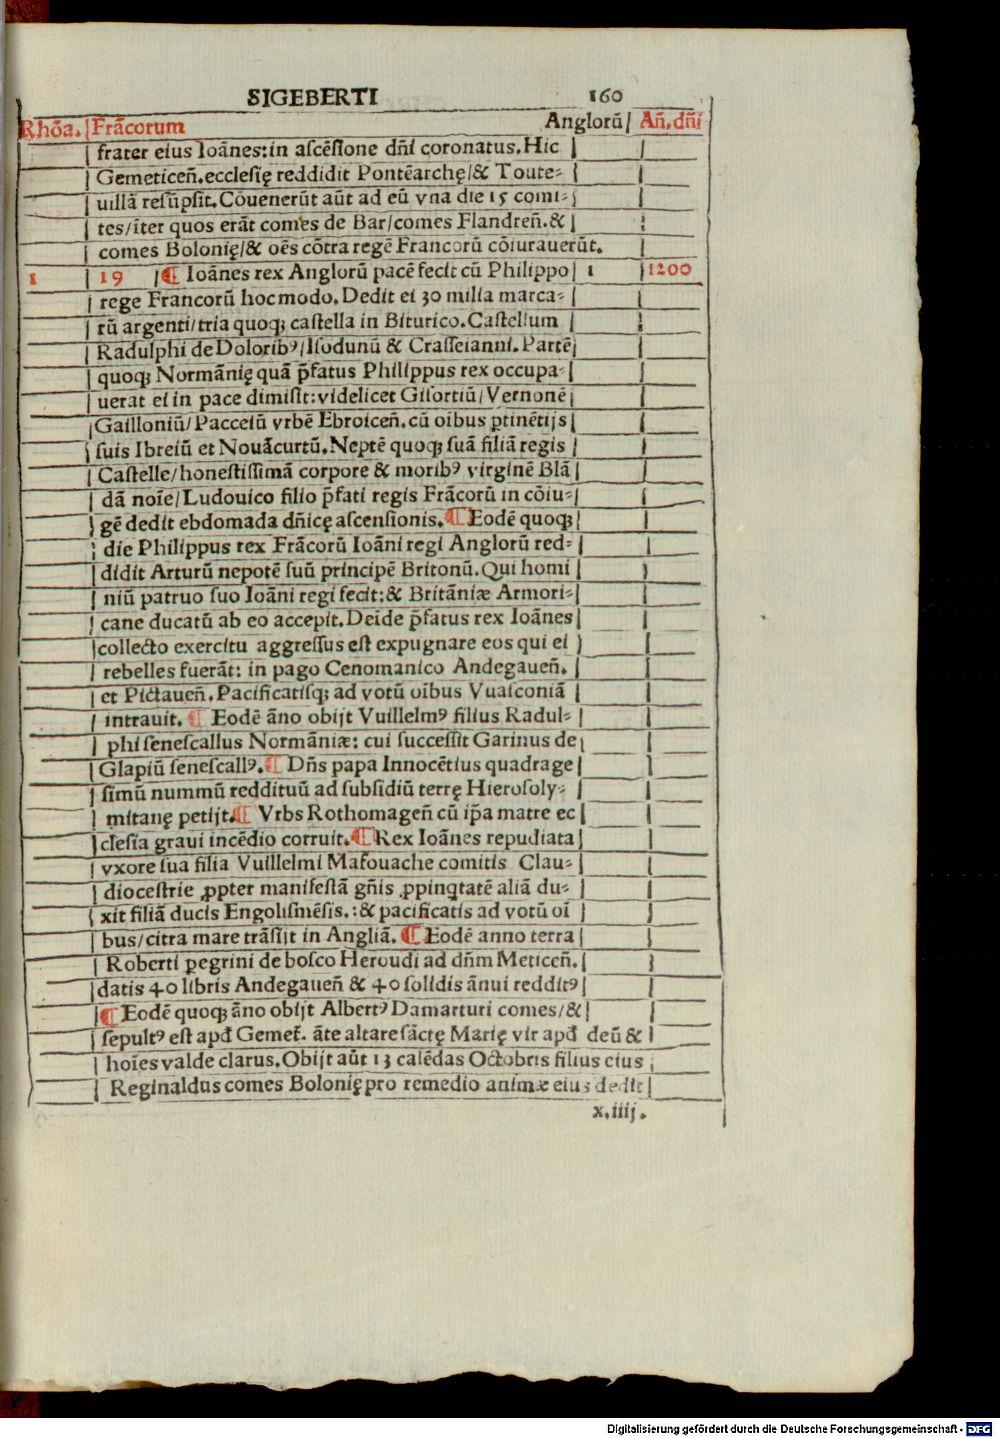 SIGEBERTI 160
Rhōa. Frācorum Anglorū Añ, dñi
frater eius Ioānes: in ascēsione dñi coronatus. Hic
Gemeticeñ. ecclesię reddidit Pontēarchę/& Toute⸗
uillā resūpsit. Cōuenerūt aūt ad eū vna die 15 comi⸗
tes/iter quos erāt comes de Bar/comes Flandreñ. &
comes Bolonię/& oēs cōtra regē Francorū cōiurauerūt.
1 19 ¶ Ioānes rex Anglorū pacē fecit cū Philippo 1 1200
rege Francorū hoc modo. Dedit ei 30 milia marca⸗
rū argenti/tria quoqꝫ castella in Biturico. Castellum
Radulphi de Doloribꝰ/Isodunū & Crasseianni. Partē
quoqꝫ Normānię quā p̄fatus Philippus rex occupa⸗
uerat ei in pace dimisit: videlicet Gisortiū/Vernonē
Gailloniū/Pacceiū vrbē Ebroiceñ. cū oibus ꝑtinētijs
suis Ibreiū et Nouācurtū. Neptē quoqꝫ suā filiā regis
Castelle/honestissimā corpore & moribꝰ virginē Blā
dā noīe/Ludouico filio p̄fati regis Frācorū in cōiu⸗
gē dedit ebdomada dñicę ascensionis. ¶ Eodē quoqꝫ
die Philippus rex Frācorū Ioāni regi Anglorū red⸗
didit Arturū nepotē suū principē Britonū. Qui homi
niū patruo suo Ioāni regi fecit: & Britāniæ Armori⸗
cane ducatū ab eo accepit. Deīde p̄fatus rex Ioānes
collecto exercitu aggressus est expugnare eos qui ei
rebelles fuerāt: in pago Cenomanico Andegaueñ.
et Pictaueñ. Pacificatisqꝫ ad votū oībus Vuasconiā
intrauit. ¶ Eodē āno obijt Vuillelmꝰ filius Radul⸗
phi senescallus Normāniæ: cui successit Garinus de
Glapiū senescallꝰ. ¶ Dñs papa Innocētius quadrage
simū nummū reddituū ad subsidiū terrę Hierosoly⸗
mitanę petijt. ¶ Vrbs Rothomageñ cū ip̄a matre ec
clesia graui incēdio corruit. ¶ Rex Ioānes repudiata
vxore sua filia Vuillelmi Masouache comitis Clau⸗
diocestrie ꝓpter manifestā gñis ꝓpinqtatē aliā du⸗
xit filiā ducis Engolismēsis.: & pacificatis ad votū oī
bus/citra mare trāsijt in Angliā. ¶ Eodē anno terra
Roberti ꝑegrini de bosco Heroudi ad dñm Meticeñ.
datis 40 libris Andegaueñ & 40 solidis ānui redditꝰ
¶ Eodē quoqꝫ āno obijt Albertꝰ Damarturi comes/&
sepultꝰ est apd̄ Gemet̄. āte altare sāctę Marię vir apd̄ deū &
hoīes valde clarus. Obijt aūt 13 calēdas Octobris filius eius
Reginaldus comes Bolonię pro remedio animæ eius dedit
x.iiij.
Digitalisierung gefördert durch die Deutsche Forschungsgemeinschaft - DFG